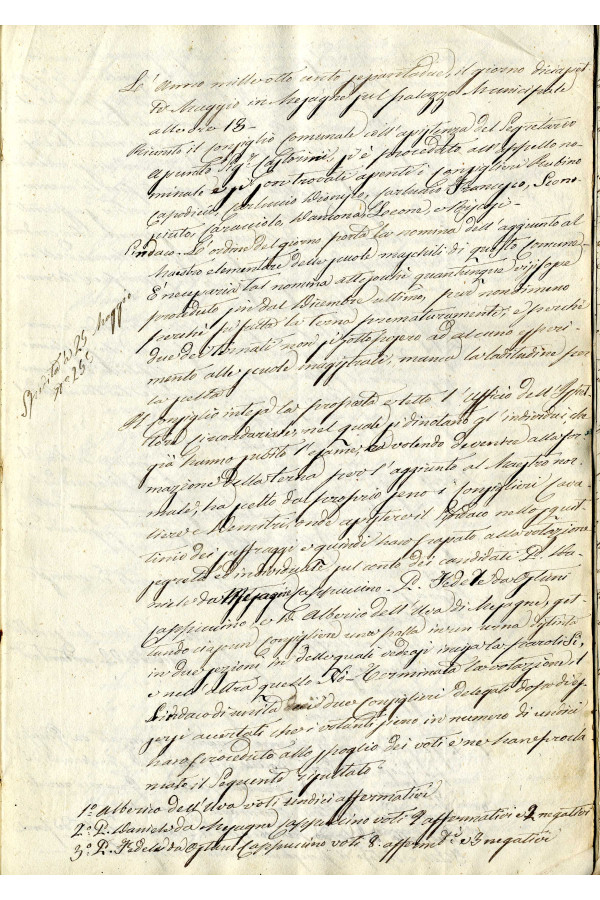 L'Anno mille otto cento sessantadue, il giorno diciasset
te Maggio in Mesagne sul palazzo Municipale
alle ore 18 –
Riunito il Consiglio Comunale coll'assistenza del Segretario
assunto Sig.r Castorini, si è proceduto all'appello no
minale e si son trovate assenti i Consiglieri Rubino
Capodieci, Carluccio Francesco,
Caracciolo,
Sindaco – L'ordine del giorno porta la nomina dell'aggiunto al
Maestro elementare delle scuole maschili di questo Comune
È necessaria la nomina attesochè quantunque si fosse
proceduto sin dal Dicembre ultimo, pure non di meno
perchè si fatta la terna prematuramente, e perchè
due dei ternati non si sottoposero ad alcuno esperi
mento alle scuole magistrali, manca la latitudine per
la scelta
Spedita li 25 Maggio
n.° 256
Il Consiglio intesa la proposta e letto l'Ufficio dell'Ispet
tore secondario, nel quale si dinotano gl'individui che
già hanno subito l'esame, e volendo devenire alla for
mazione della terna per l'aggiunto al Maestro nor
male, ha scelto dal proprio seno i Consiglieri Cava
liere e Demitri, onde assistere il Sindaco nello scruti
tinio dei suffragi e quindi ha passato alla votazione
segreta ed individuale sul conto dei candidati P. Da
niele da Mesagne Cappuccino – P. Fedele da Ostuni
Cappuccino, e D. Alberico dell'Uva di Mesagne, get
tando ciascun Consigliere una palla in un urna distinta
in due sezioni in delle quali vedesi incisa la parola Si,
e nell'altra quella No – Terminata la votazione il
Sindaco di unita dei due Consiglieri delegati dopo di es
sersi accertati che i votanti sono in numero di undici
hanno proceduto allo spoglio dei voti e ne hanno procla
mato il seguente risultato
1.° Alberico dell'Uva voti undici affermativi
2.° P. Daniele da Mesagne Cappuccino voti 9 affermativi e 2 negativi
3.° P. Fedele da Ostuni Cappuccino voti 8 afferm.vi e 3 negativi